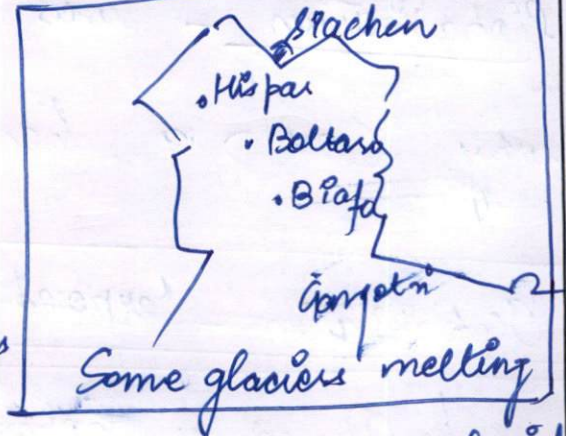 Siachen
Hispar
Baltaro
Biafo
Gangotri
Some glaciers melting